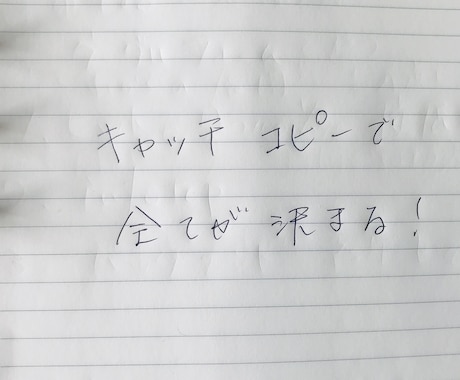 キャッチ コピーで
全てが 決まる!